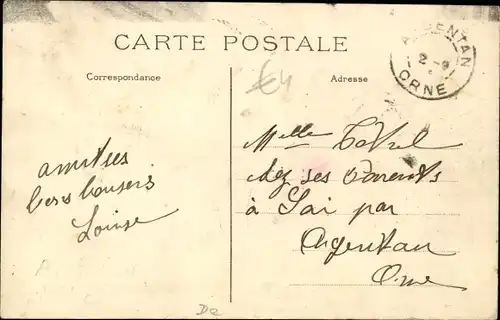 CARTE POSTALE
Correspondance
Adresse
ARGENTAN
2-9
ORNE
€4
amitiés
bons baisers
Louise
Melle
chez ses Parents
à Sai par
Argentan
Orne
De